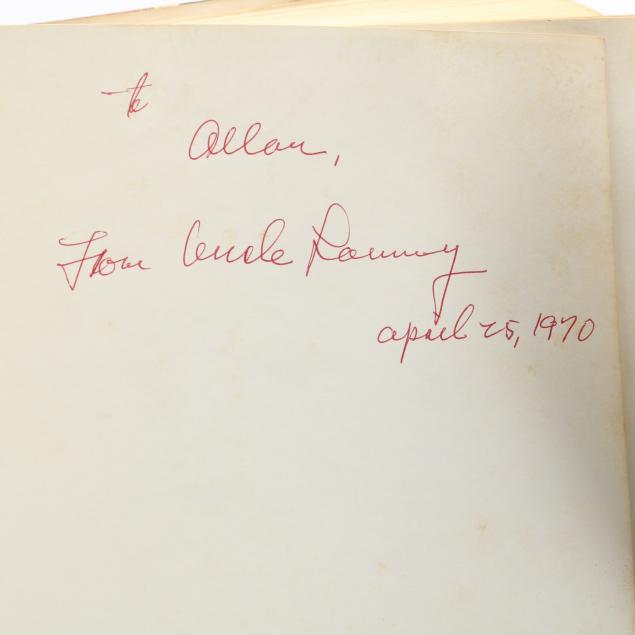 to
Allan,
From Uncle Ronny
april 25, 1970